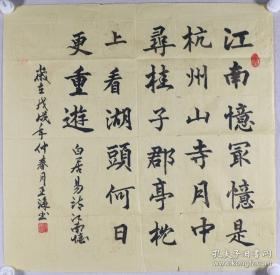 江南憶㝡憶是
杭州山寺月中
尋桂子郡亭枕
上看湖頭何日
更重遊
白居易詩江南憶
歲在戊戌年仲春月
孔夫子旧书网